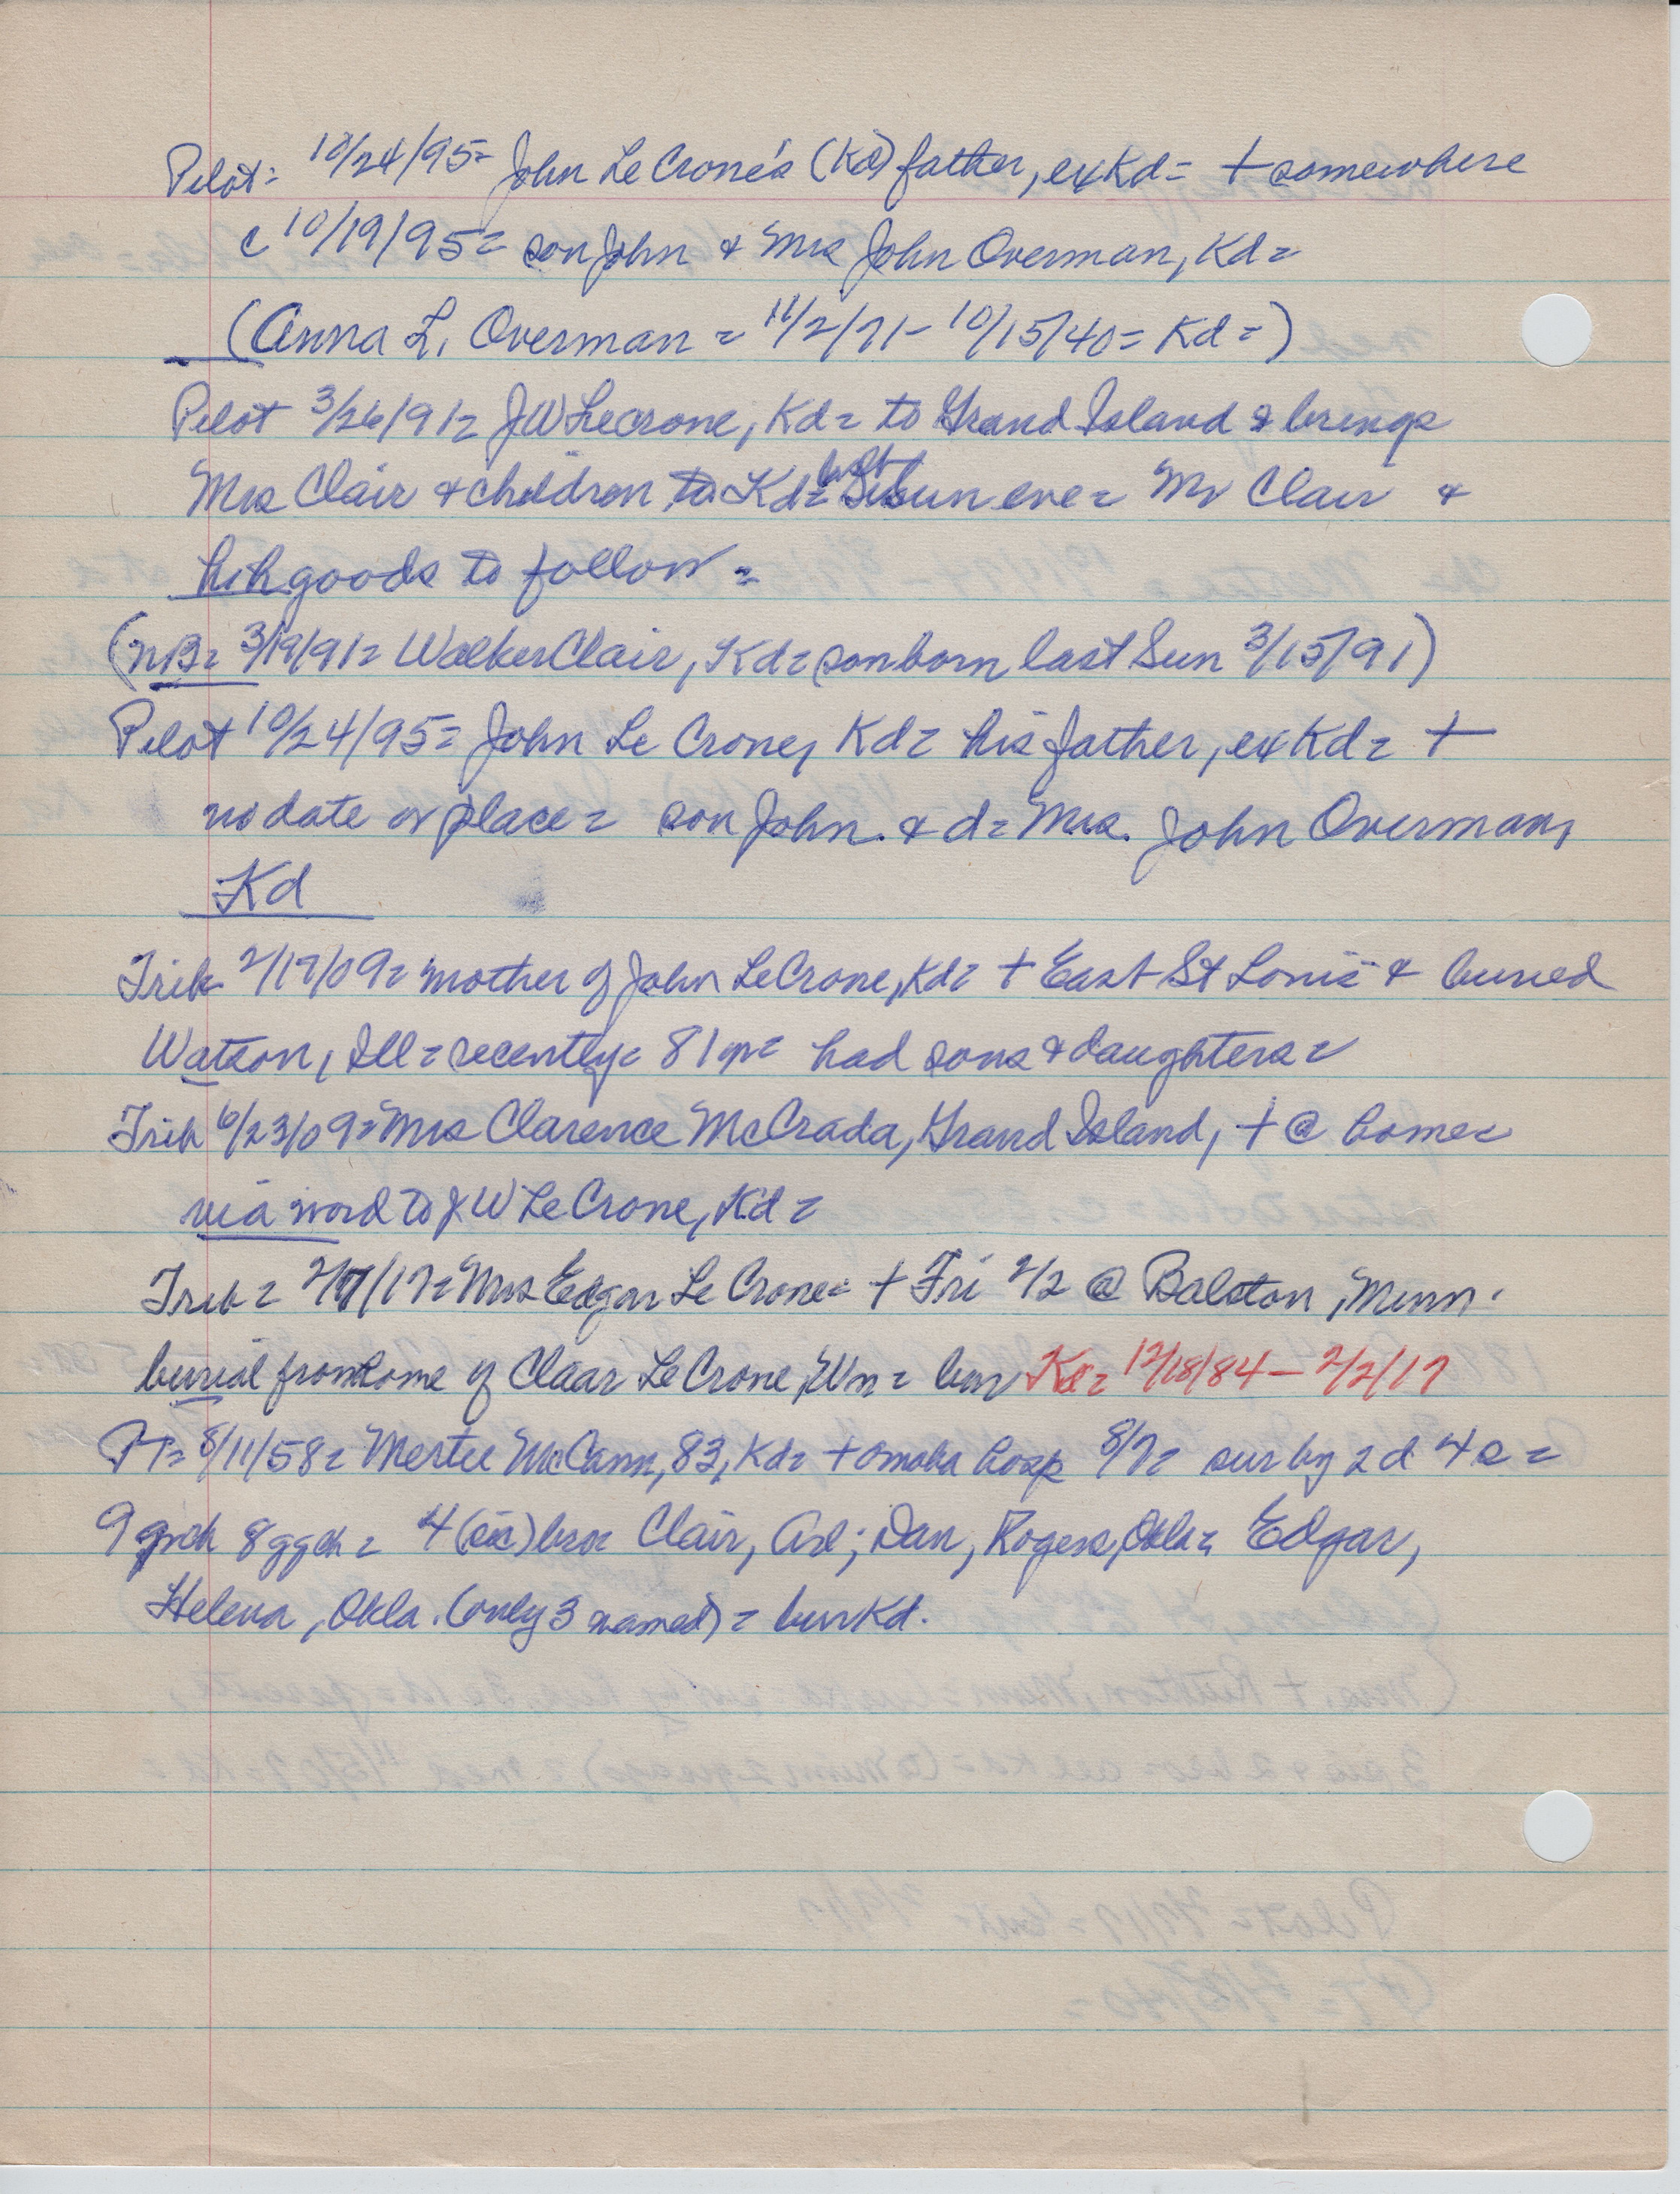 Pilot = 10/24/95 = John Le Crone's (Kd) father, ex Kd = + somewhere
c 10/19/95 = son John & Mrs John Overman, Kd =
(Anna L. Overman = 11/2/71 - 10/15/40 = Kd =)
Pilot 3/26/91 = JW Lecrone, Kd = to Grand Island & brings
Mrs Clair & children to Kd = last Sun eve = Mr Clair &
hsh goods to follow =
(NB = 3/19/91 = Walker Clair, Kd = son born last Sun 3/15/91)
Pilot 10/24/95 = John Le Crone, Kd = his father, ex Kd = +
no date or place = son John. & d = Mrs. John Overman,
Kd
Trib 2/17/09 = mother of John LeCrone, Kd = + East St Louis & buried
Watson, Ill = recently = 81 yr = had sons & daughters =
Trib 6/23/09 = Mrs Clarence McCrada, Grand Island, + @ home =
via word to J W LeCrone, Kd =
Trib = 2/7/17 = Mrs Edgar Le Crone = + Fri 2/2 @ Balaton, Minn.
burial from home of Claar LeCrone, Wn = bur Kd = 12/18/84 - 2/2/17
PT = 8/11/58 = Mertie McCann, 83, Kd = + Omaha hosp 8/7 = sur by 2 d 4 s =
9 grch 8 ggch = 4 (sic) bro = Clair, Arl; Dan, Rogers, Okla = Edgar,
Helena, Okla. (only 3 named) = bur Kd.